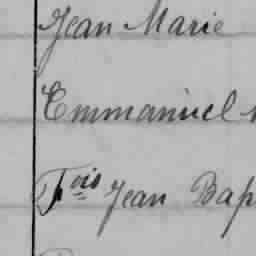 Jean Marie
Emmanuel
Fois Jean Bap